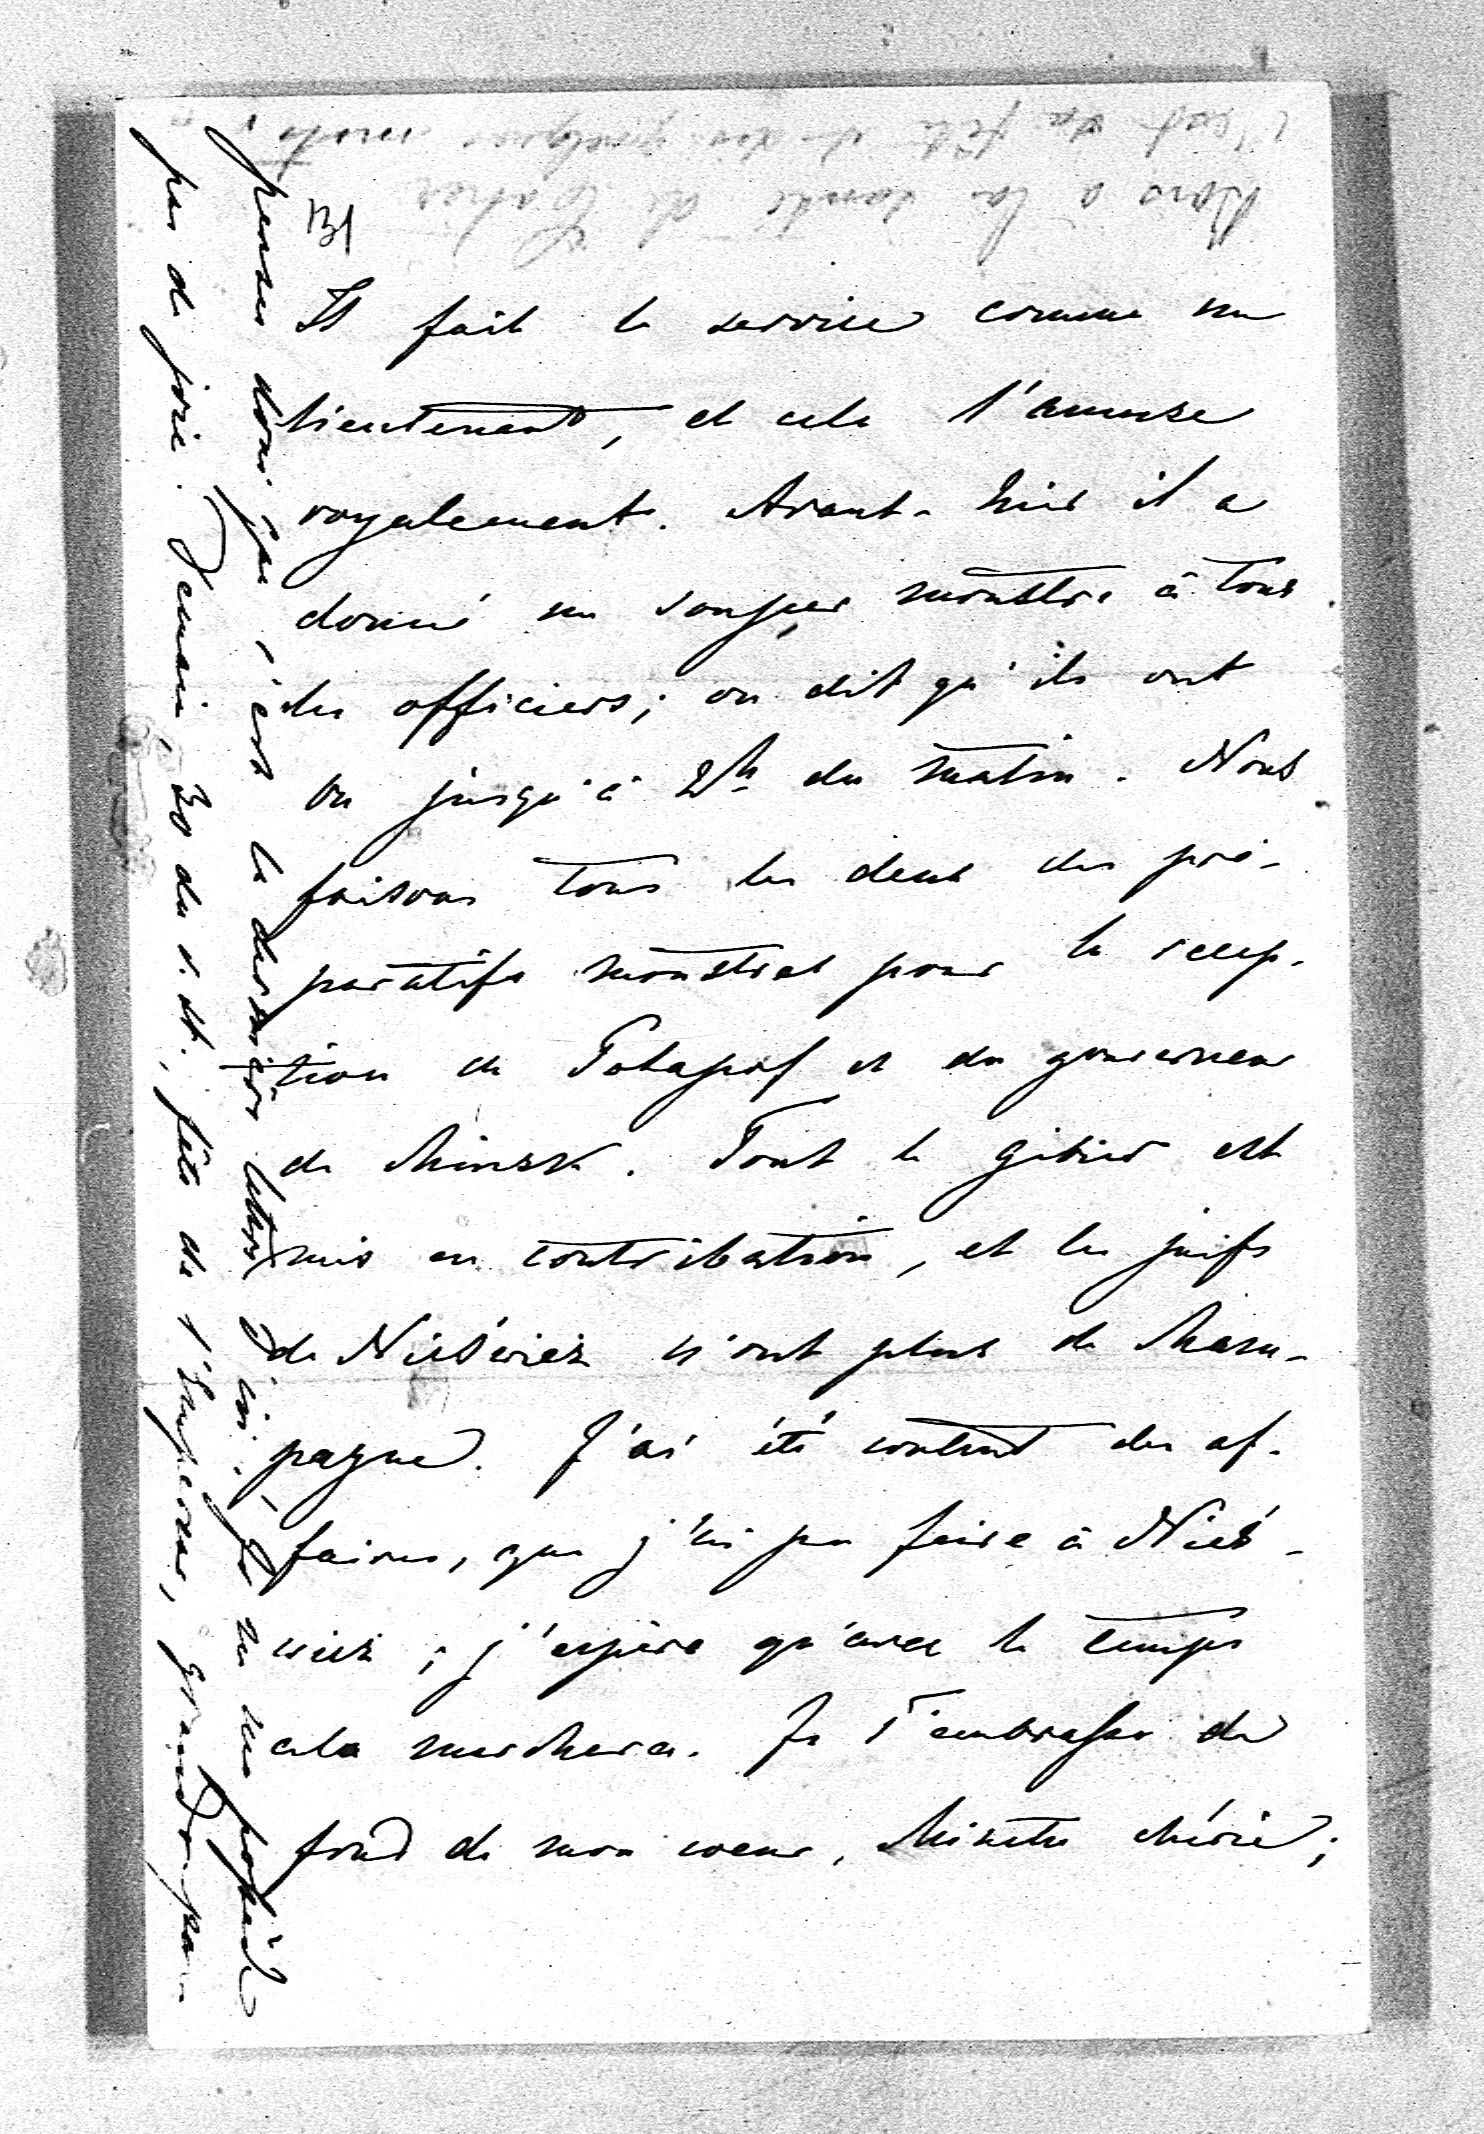 13)
Il fait le service comme un
lieutenant, et cela l'amuse
royalement. Avant-hier il a
donné un souper monstre à tous
les officiers; on dit qu'ils ont
bu jusqu'à 2h du matin. Nous
faisons tous les deux des pré-
paratifs monstres pour la récep-
tion de Potapof et du gouverneur
de Minsk. Tout le gibier est
mis en contribution, et les juifs
de Nieświez n'ont plus de cham-
pagne. J'ai été content des af-
faires, que j'ai pu faire à Nieś-
wiez; j'espère qu'avec le temps
cela marchera. Je t'embrasse du
fond de mon coeur, Minette chérie;
penses donc que c'est la dernière lettre d'ici. Je ne me possède
pas de joie. Demain, 30 du v. st., fête de l'Empereur, grand